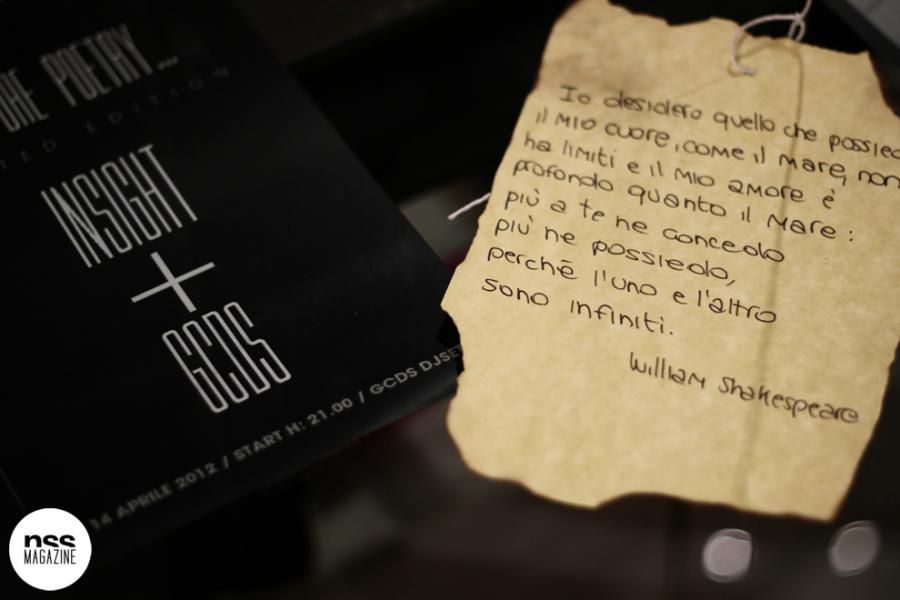 ORE POETRY...
TED EDITION
INSIGHT
+
GCDS
14 APRILE 2012 / START H: 21.00 / GCDS DJSE
Io desidero quello che possied
il mio cuore, come il mare, non
ha limiti e il mio amore è
profondo quanto il mare:
più a te ne concedo
più ne possiedo,
perchè l'uno e l'altro
sono infiniti.
William Shakespeare
nss
MAGAZINE